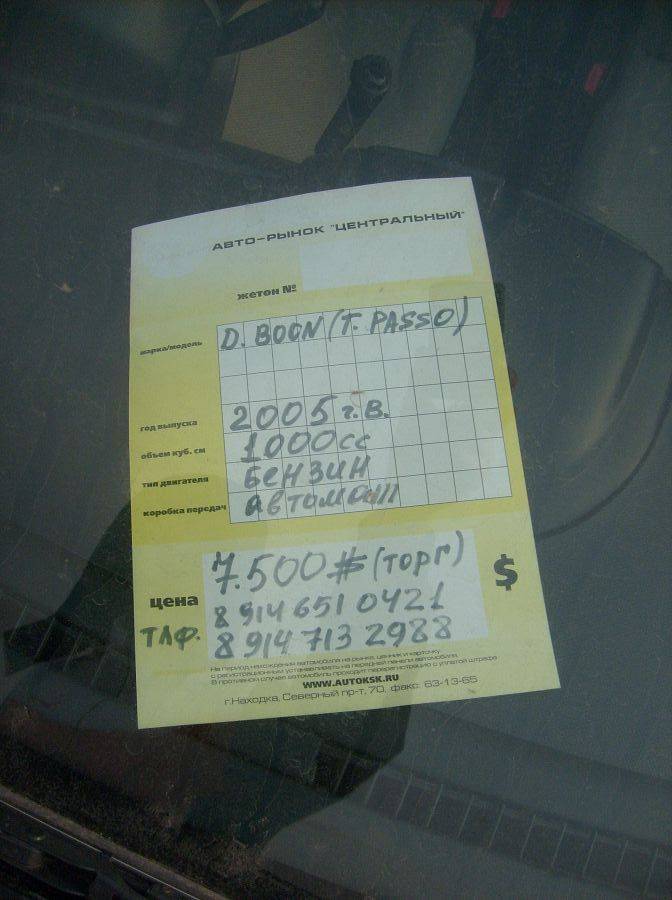 АВТО-РЫНОК "ЦЕНТРАЛЬНЫЙ"
жетон №
марка/модель D. BOON (T. PASSO)
год выпуска 2005 г.в.
объем куб. см 1000 cc
тип двигателя бензин
коробка передач автомат
цена 7.500 # (торг) $
ТЛФ. 8 914 651 0421
8 914 713 2988
На период нахождения автомобиля на рынке, ценник и карточку
с регистрационным устанавливать на передней панели автомобиля.
В противном случае автомобиль проходит перерегистрацию с уплатой штрафа
WWW.AUTOKSK.RU
г.Находка, Северный пр-т, 70, факс: 63-13-65